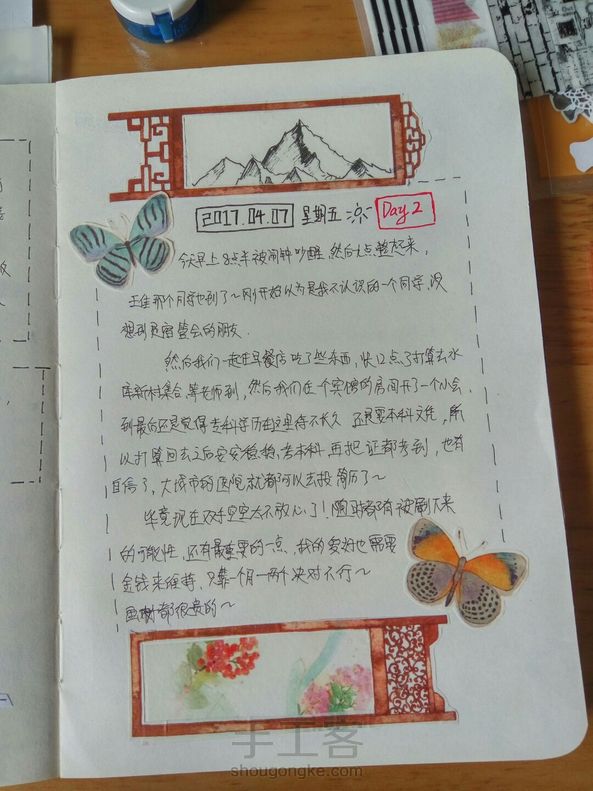 2017.04.07 星期五 Day 2
今天早上8点半被闹钟吵醒,然后9点整起来,
那个同学也到了~刚开始以为是我不认识的一个同学,没
想到是宿营会的朋友.
然后我们一起在早餐店吃了些东西,快12点了打算去水
库新村集合,等老师到,然后我们在一个宾馆的房间开了一个小会,
到最后还是觉得专科学历在这里待不长久 还是要本科文凭,所
以打算回去之后安安稳稳,考本科,再把证都考到,也有
自信了,大城市的医院就都可以去投简历了~
毕竟现在双手空空太不放心了!随时都有被刷下来
的可能性,还有最重要的一点,我的爱好也需要
金钱来维持,只靠一个月一两个决对不行~
都很贵的~
手工客
shougongke.com